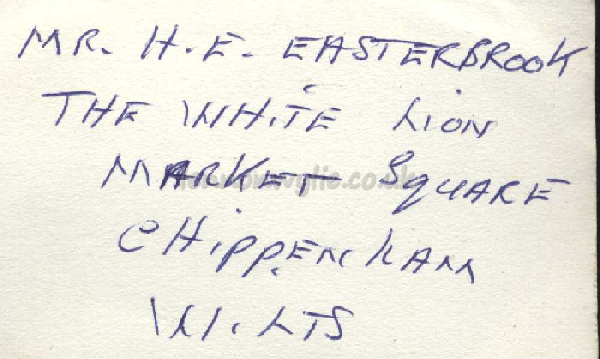 MR. H.E. EASTERBROOK
THE WHITE LION
MARKET SQUARE
CHIPPENHAM
WILTS